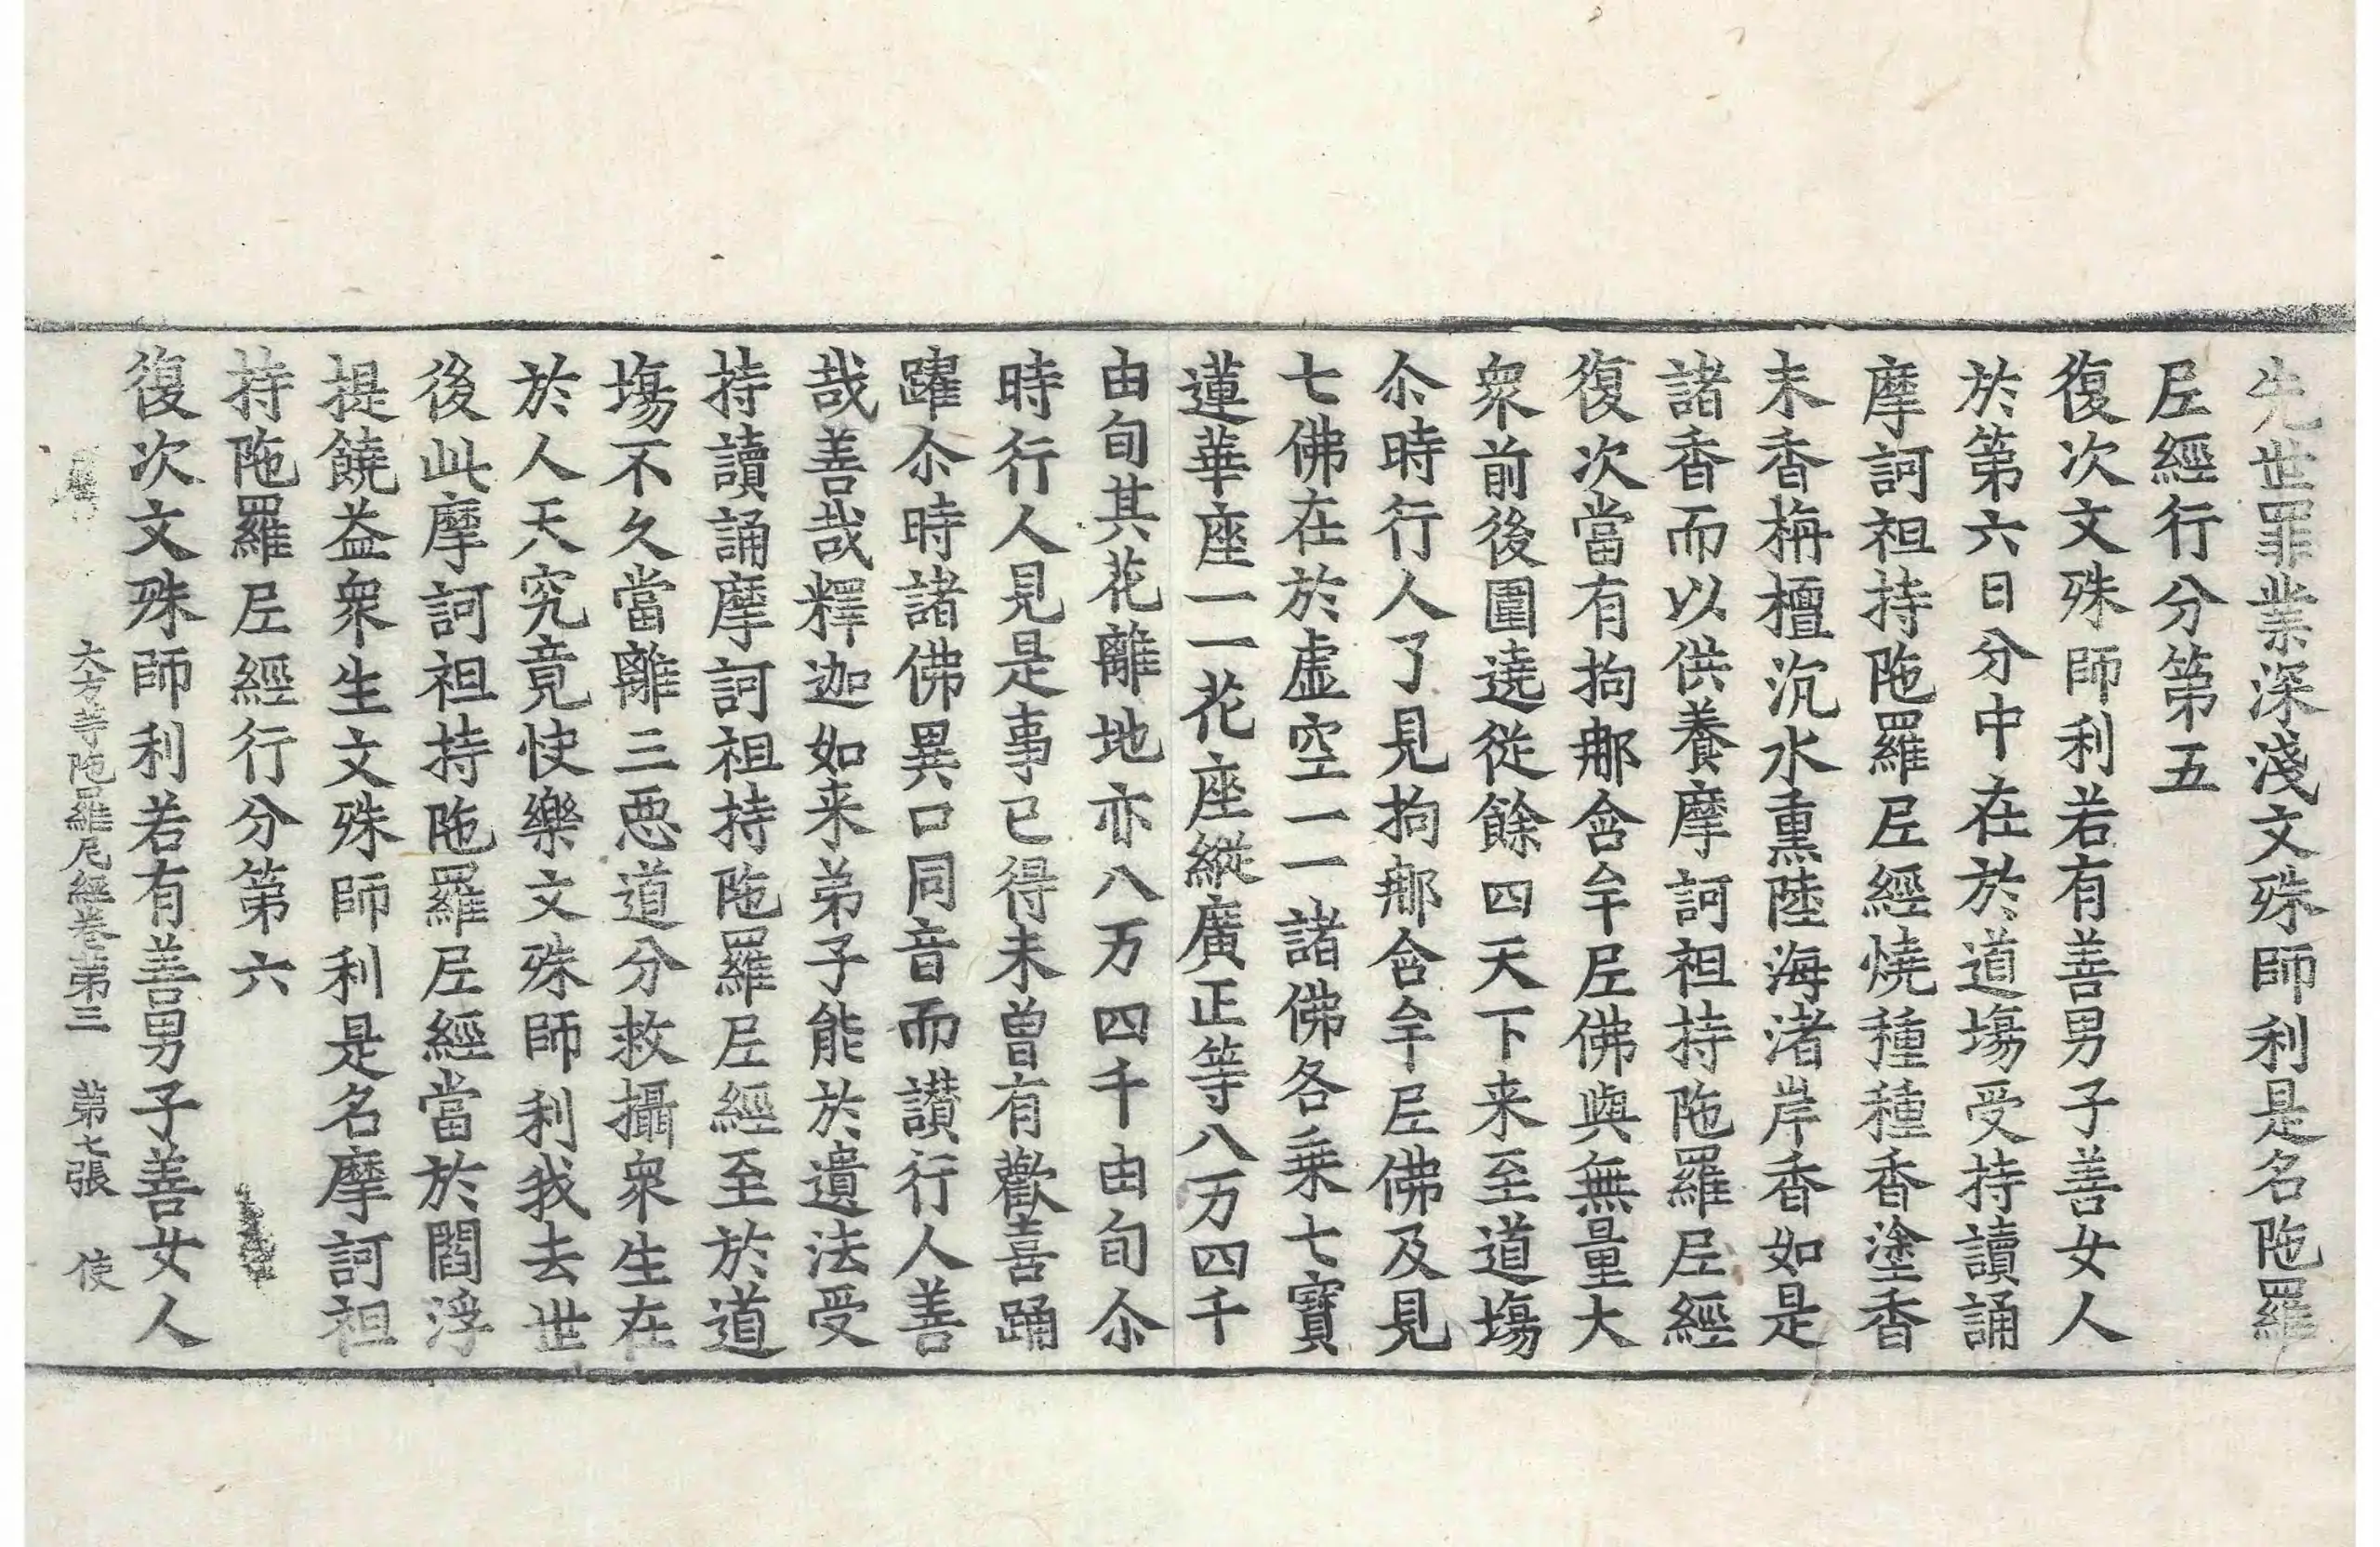 先世罪業深淺文殊師利是名陁羅
𡰱經行分第五
復次文殊師利若有善男子善女人
於第六日分中在於道場受持讀誦
摩訶祖持陁羅𡰱經燒種種香塗香
末香栴檀沉水熏陸海渚岸香如是
諸香而以供養摩訶祖持陁羅𡰱經
復次當有拘郍含牟𡰱佛與無量大
衆前後圍遶從餘四天下来至道塲
尒時行人了見拘郍含牟𡰱佛及見
七佛在於虛空一一諸佛各乗七寶
蓮華座一一花座縱廣正等八万四千
由旬其花離地亦八万四千由旬尒
時行人見是事已得未曾有歡喜踊
躍尒時諸佛異口同音而讃行人善
哉善哉釋迦如来弟子能於遺法受
持讀誦摩訶祖持陁羅𡰱經至於道
塲不久當離三惡道分救攝衆生在
於人天究竟快樂文殊師利我去世
後此摩訶祖持陁羅𡰱經當於閻浮
提饒益衆生文殊師利是名摩訶祖
持陁羅𡰱經行分第六
復次文殊師利若有善男子善女人
大方等陁羅尼經卷第三 第七張 使